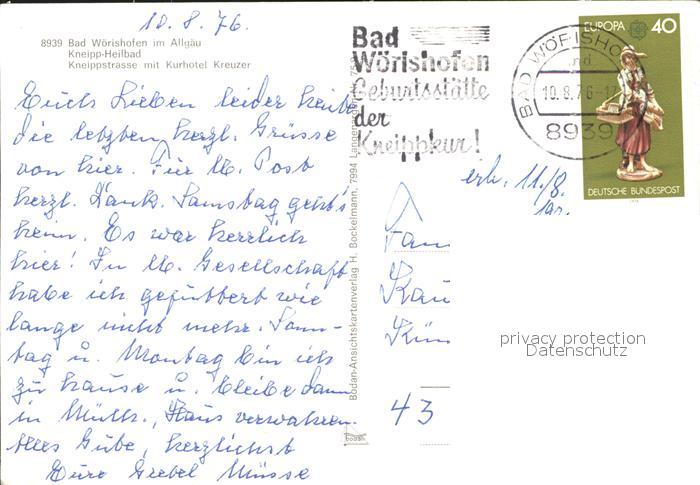 10.8.76.
8939 Bad Wörishofen im Allgäu
Kneipp-Heilbad
Kneippstrasse mit Kurhotel Kreuzer
Euch Lieben leider heute
die letzten herzl. Grüsse
von hier. Für lb. Post
herzl. Dank. Samstag geht's
heim. Es war herrlich
hier! In lb. Gesellschaft
habe ich gefuttert wie
lange nicht mehr. Sams-
tag u. Montag bin ich
zu hause u. bleibe dann
in Haus verwahren.
Alles Gute, herzlichst
Eure
Bad
Wörishofen
Geburtsstätte
der
Kneippkur!
BAD WÖRISHOFEN
10.8.76-17
8939
EUROPA 40
DEUTSCHE BUNDESPOST
erh. 11./8.
Fam
43
Bodan-Ansichtskartenverlag H. Bockelmann, 7994 Langenargen
bodan
privacy protection
Datenschutz